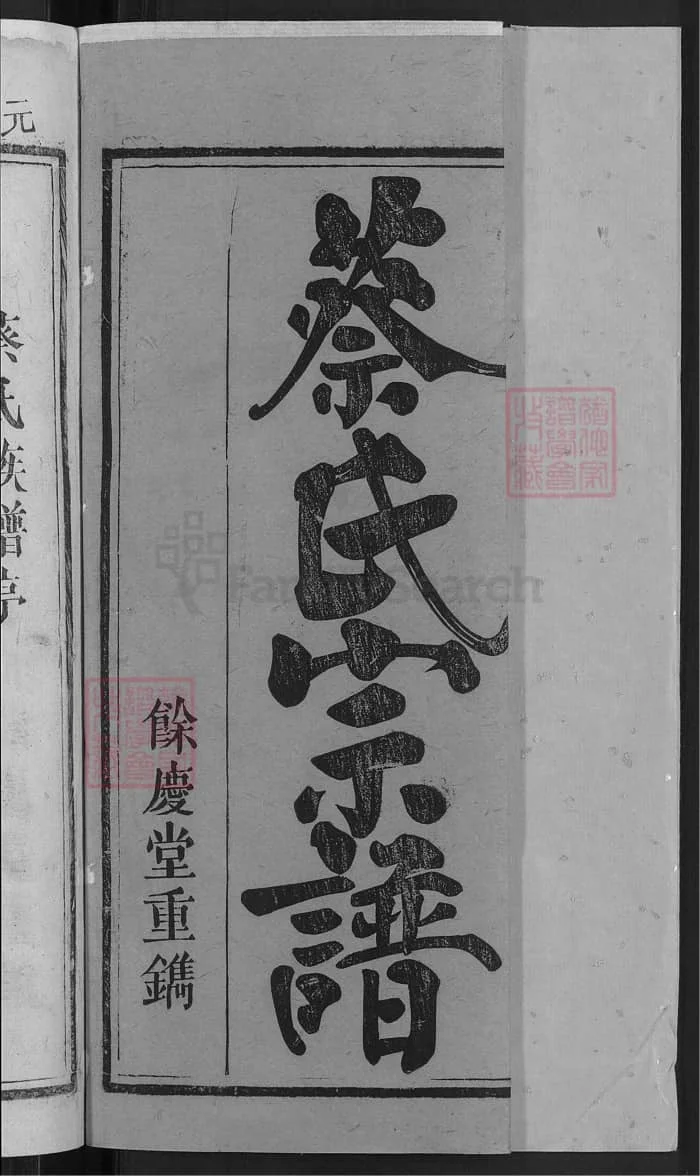 蔡氏宗譜
餘慶堂重鐫
元
蔡氏族譜序
FamilySearch